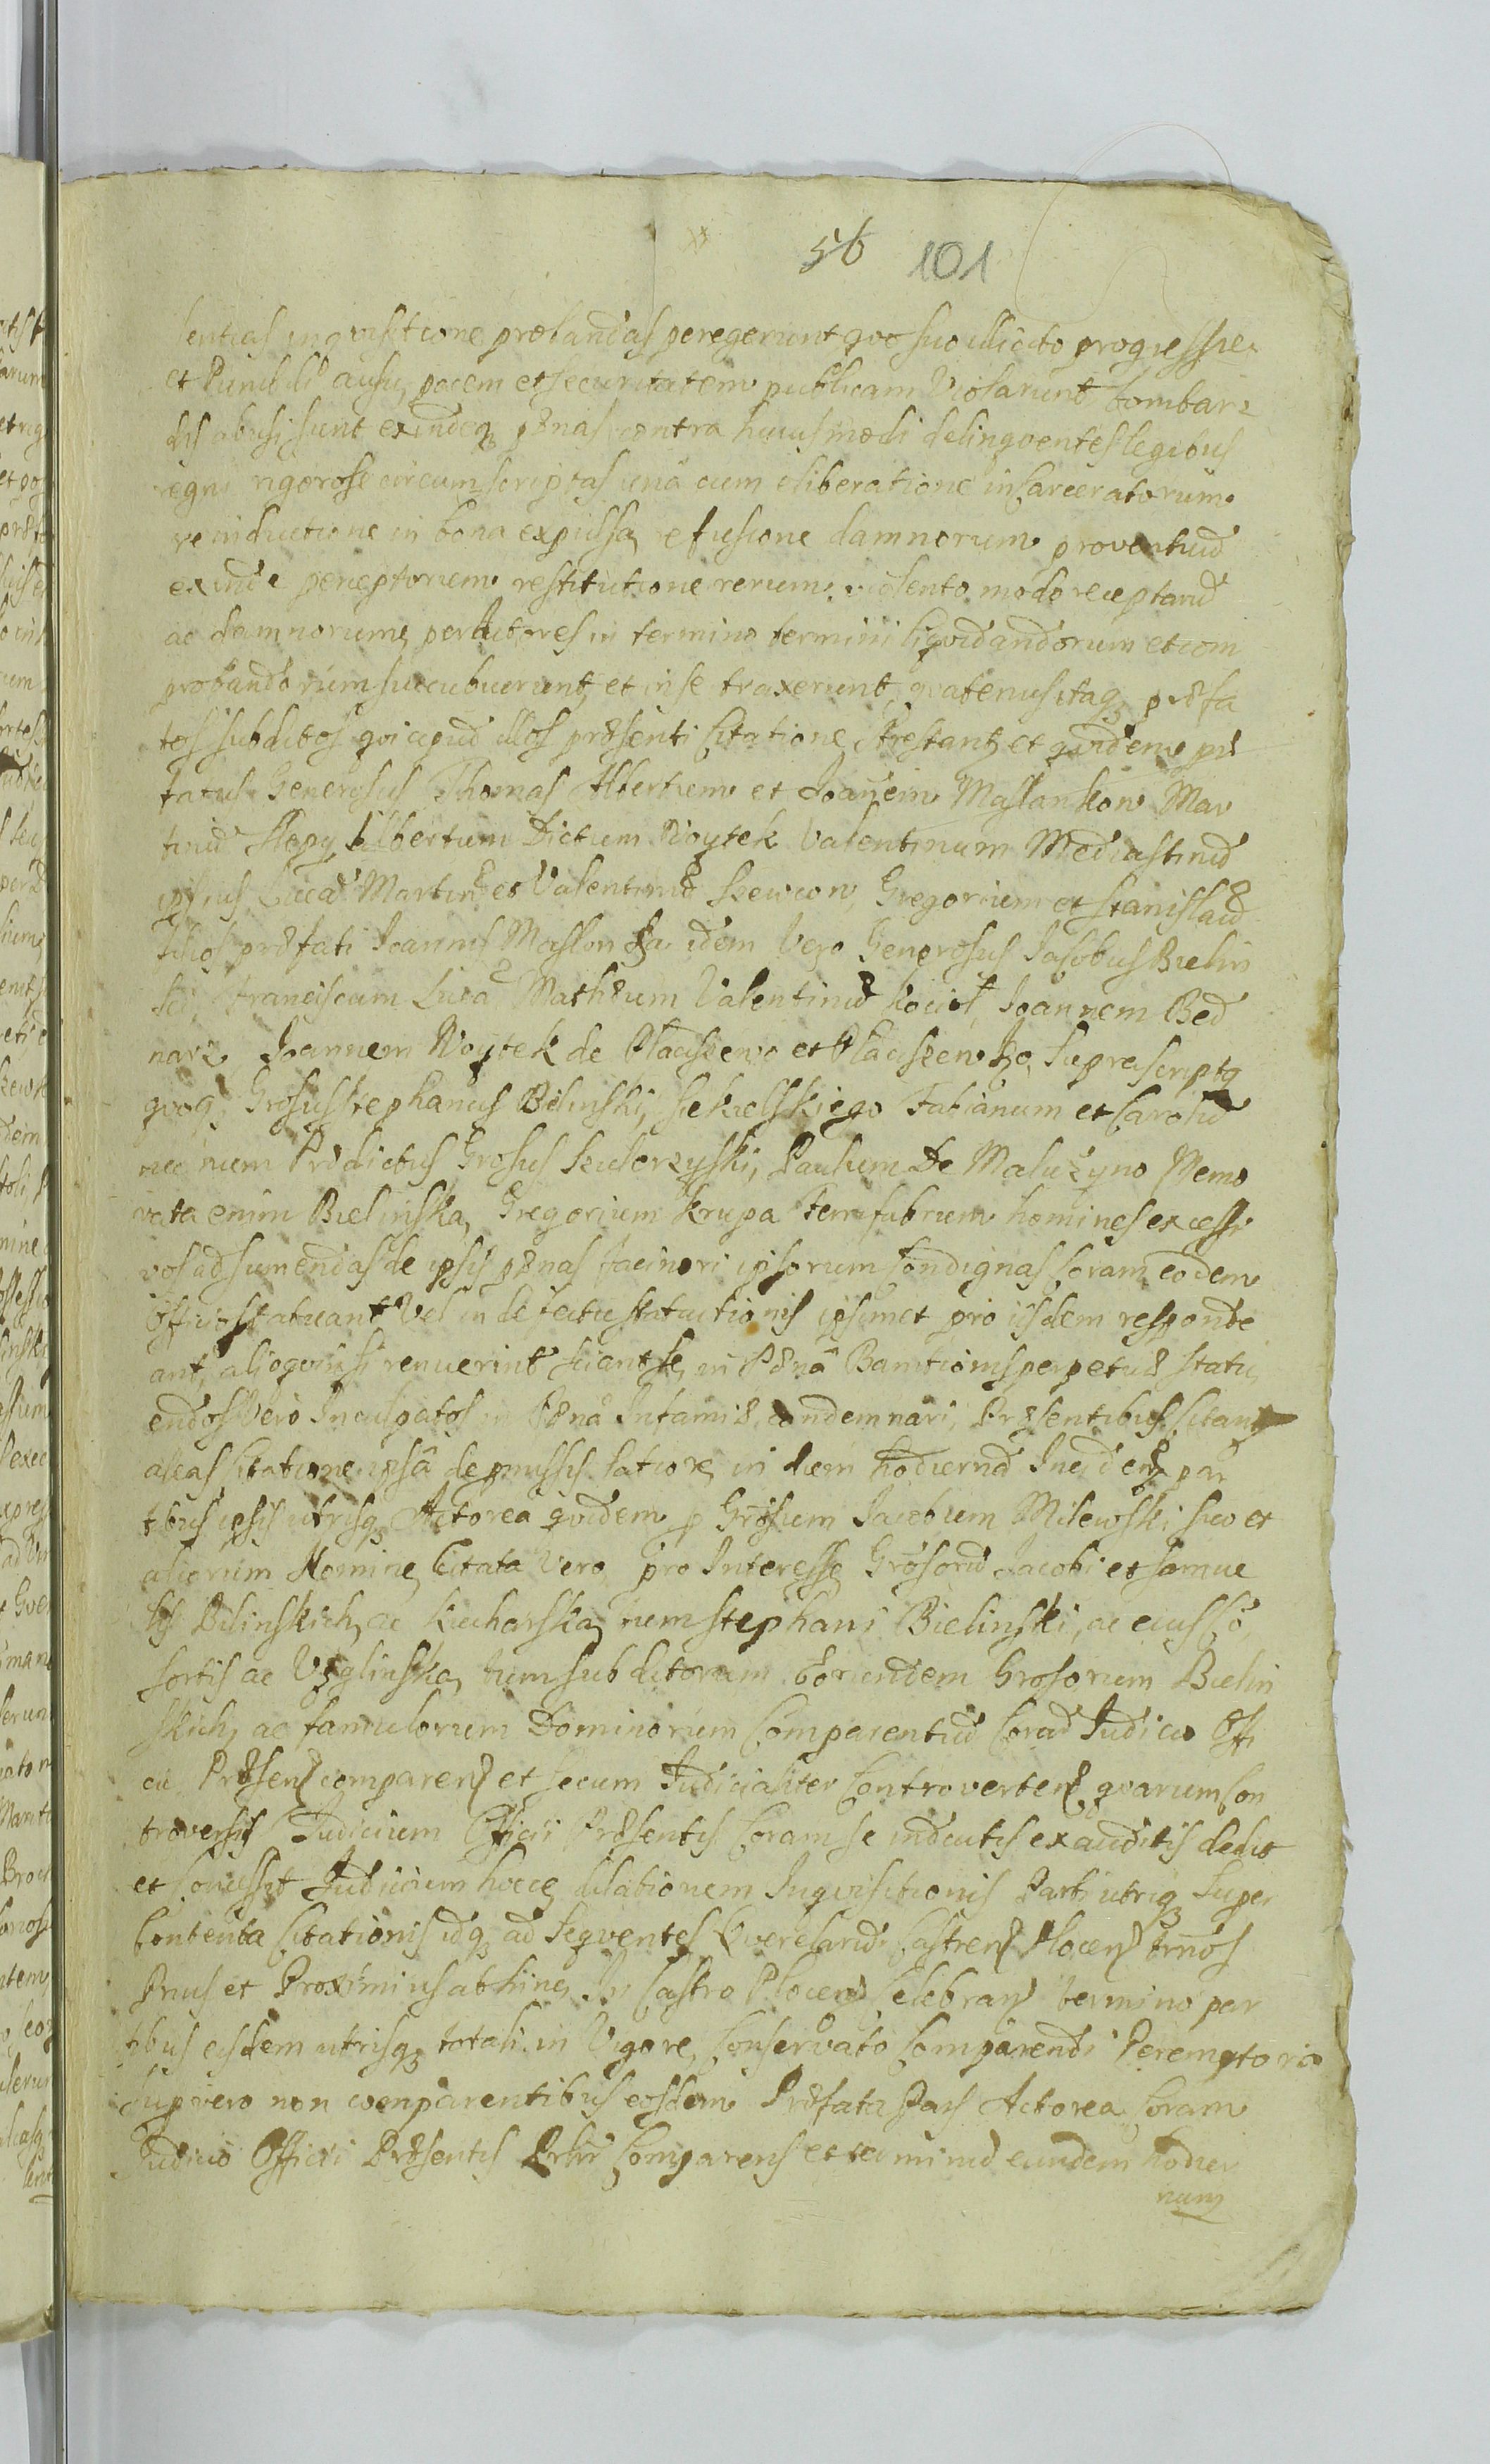 56 101
lentias inqvisitione probandas peregerunt qvo suo illicito progressu
et Punibili ausu, pacem et securitatem publicam Violarunt bombar
dis abusi sunt exindeq pænas contra huiusmodi delinqventes legibus
regni rigorose circumscriptas una cum eliberatione incarceratorum
reinductione in bona expulsa, refusione damnorum proventuum
exinde perceptorum restitutione rerum violento modo receptarum
ac damnorum, per Actores in termino termini liqvidandorum et com
probandorum succubuerunt, et in se traxerunt, qvatenus itaq præfa
tos subditos qvi apud illos præsenti Citatione Arestantz et qvidem præ
fatus Generosus Thomas Albertum et Joannem Maslankow Mar
tinum Albertum Dictum Woytek Valentinum Mediastinum
ipsius Lucam Martinum et Valentinum Szewcow, Gregorium et Stanislaum
filios præfati Joannis Maslonka idem Vero Generosus Jacobus Bielin
ski Franciscum Lucam Mathæum Valentinum Kociol, Joannem Bed
narz Joannem Woytek de Płaciszewo et Płaciszewko, Suprascriptq
qvoq Grosus Stephanus Bilinski, Fabianum et Carolum
nec num Prædictus Grosus Szulorzyski, Paulum De Maluzyno Memo
rata enim Bielinska, Gregorium Krupa Ferrifabrum homines excessi
vos ad sumendas de ipsis pænas facinori ipsorum condignas Coram eodem
Officio statuant Vel in defectu statuitionis ipsimet pro iisdem responde
ant, alioqvin si renuerint sciant se, in Pæna Bannitionis perpetuæ statu
endos Vero Inculpatos in Pæna Infamiæ, condemnari, Præsentibus Citantz
aleas Citatione ipsa de præmissis latiore, in diem hodiernum Incidentz par
tibus ipsis utrisq Actorea qvidem p Grosum Jacobum Milewski suo et
aliorum Nomine, Citata Vero pro Interesse Grosorum Jacobi et Samue
lis Bilinskich, ac Kucharska, num Stephani Bielinski, ac eius Co
sortis ac Uzglinska, tum subditorum eorundem Grosorum Bielin
skich, ac famulorum Dominorum Comparentium Coram Judicio Offi
cii Præsen comparen et secum Judicialiter Controverten qvarum Con
troversiis Judicium Officii Præsentis Coram se inductis exauditis dedit
et Concessit Judicium hocce, dilationem Inqvisitionis Parti utriq Super
Contenta Citationis idq ad Seqventes Qverelarum Castren Plocen trmos
Prius et Proximius abhinc In Castro Plocen Celebran termino par
tibus eisdem utrisq totali in Vigore, Conservato Comparendi Peremptorio
Sup vero non comparentibus eosdem Præfata Pars Actorea Coram
Judicio Officii Præsentis Comparens et terminum eundem hodier
num